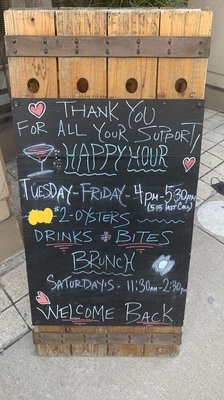 THANK YOU
FOR ALL YOUR SUPPORT!
HAPPY HOUR
TUESDAY-FRIDAY - 4PM - 5:30
(5:15 LAST CALL)
#2-OYSTERS
DRINKS + BITES
BRUNCH
SATURDAYS - 11:30AM - 2:30PM
WELCOME BACK